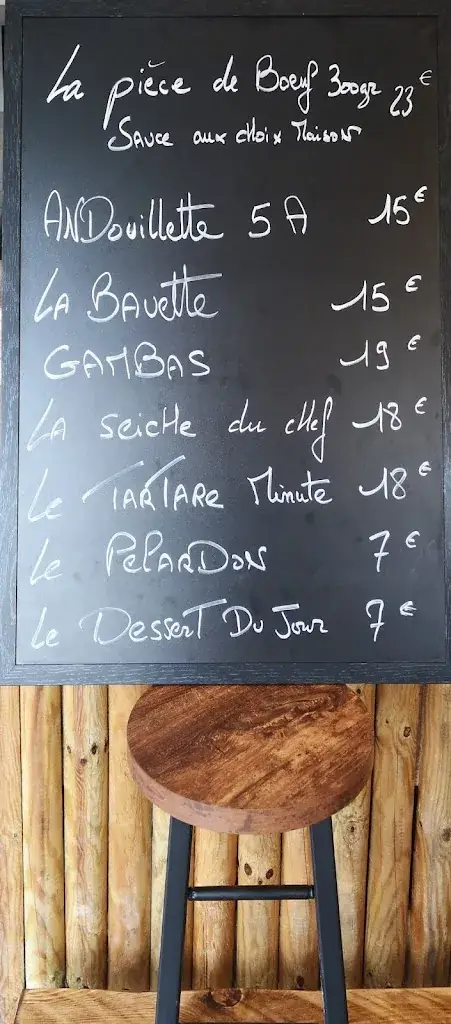 La pièce de Boeuf 300gr 23€
Sauce aux choix Maison
ANDouillette 5A 15€
LA BAvette 15€
GAMBAS 19€
LA seicHe du cHef 18€
Le TARTARe Minute 18€
Le PelARDON 7€
Le DesserT Du Jour 7€